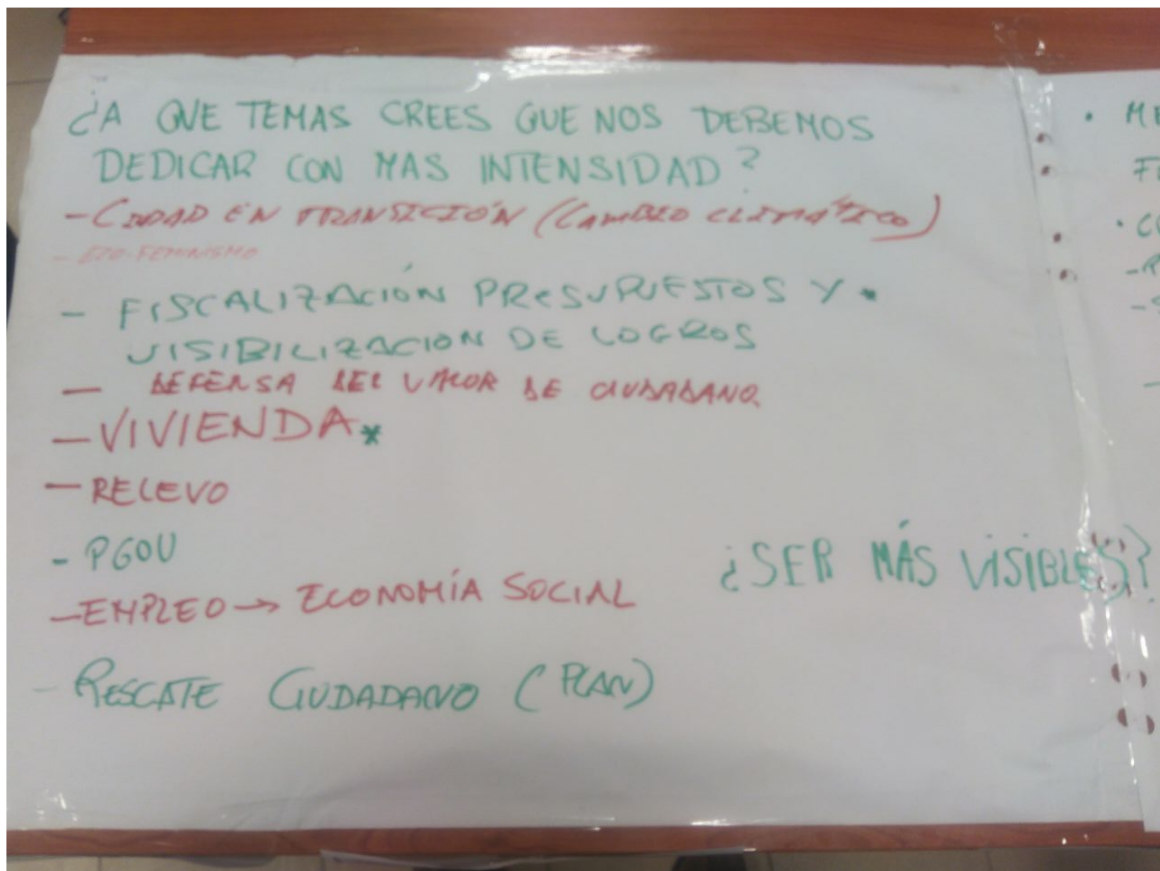 ¿A QUE TEMAS CREES QUE NOS DEBEMOS
DEDICAR CON MAS INTENSIDAD?
- CIUDAD EN TRANSICIÓN (CAMBIO CLIMÁTICO)
- ECO-FEMINISMO
- FISCALIZACIÓN PRESUPUESTOS Y *
VISIBILIZACION DE LOGROS
- DEFENSA DEL VALOR DE CIUDADANO.
- VIVIENDA *
- RELEVO
- PGOU
- EMPLEO → ECONOMÍA SOCIAL
¿SER MÁS VISIBLES?
- RESCATE CIUDADANO (PLAN)